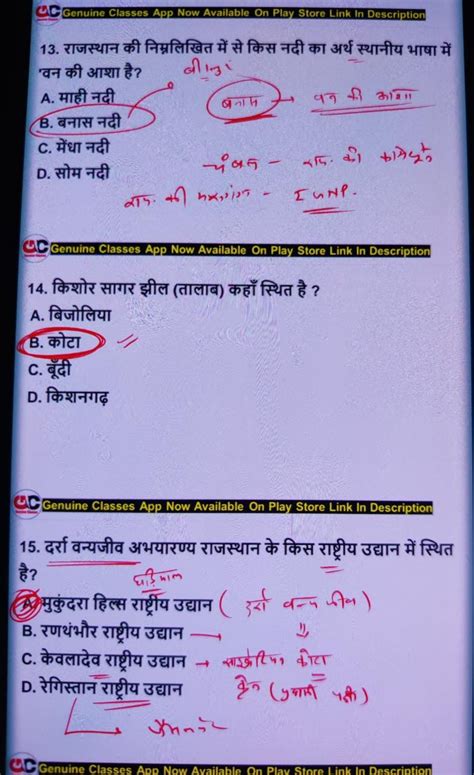 GC Genuine Classes App Now Available On Play Store Link In Description
13. राजस्थान की निम्नलिखित में से किस नदी का अर्थ स्थानीय भाषा में
'वन की आशा है?
A. माही नदी
बनास → वन की आशा
B. बनास नदी
C. मेंधा नदी
चंबल - राज. की कामधेनु
D. सोम नदी
राज. की मरुगंगा - IGNP.
GC Genuine Classes App Now Available On Play Store Link In Description
14. किशोर सागर झील (तालाब) कहाँ स्थित है ?
A. बिजोलिया
B. कोटा
C. बूँदी
D. किशनगढ़
GC Genuine Classes App Now Available On Play Store Link In Description
15. दर्रा वन्यजीव अभयारण्य राजस्थान के किस राष्ट्रीय उद्यान में स्थित
है?
घड़ियाल
A. मुकुंदरा हिल्स राष्ट्रीय उद्यान ( दर्रा वन्य जीव )
B. रणथंभौर राष्ट्रीय उद्यान →
C. केवलादेव राष्ट्रीय उद्यान → साइबेरियन कोटा
D. रेगिस्तान राष्ट्रीय उद्यान क्रेन (प्रवासी पक्षी)
GC Genuine Classes App Now Available On Play Store Link In Description